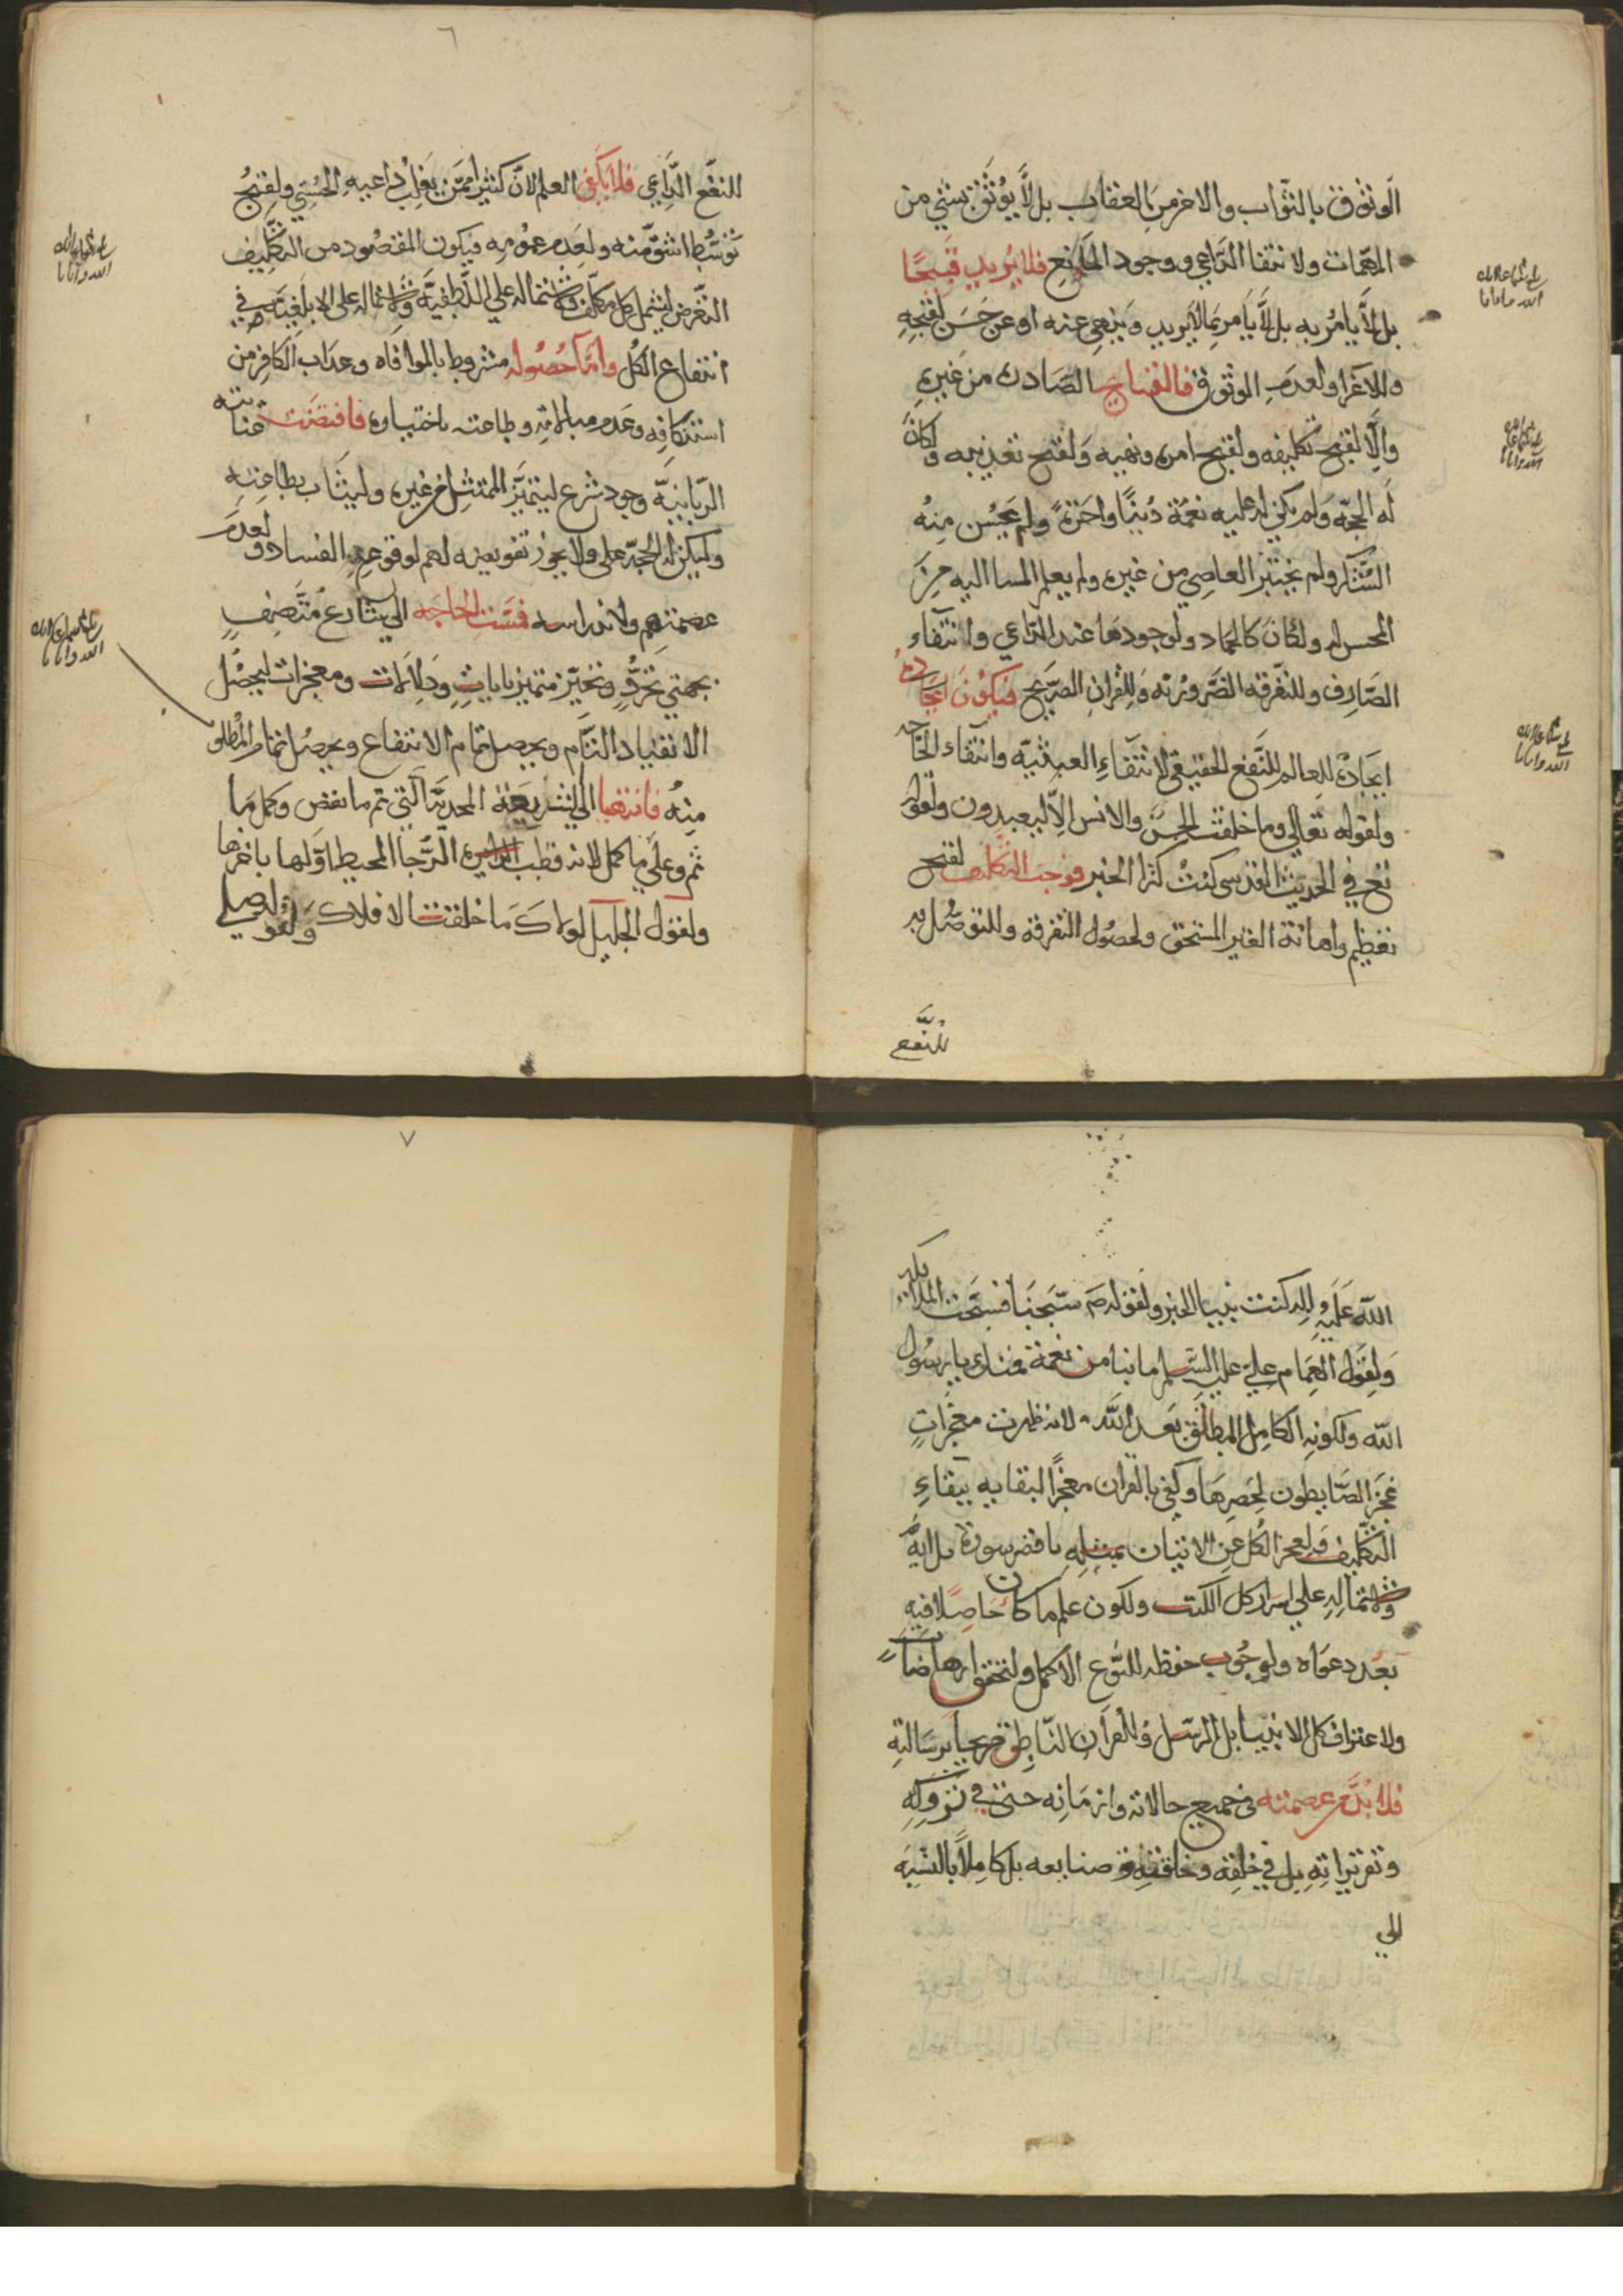 الوثوق بالثواب والاخر من العقاب بل لا يوثق بشيء من
المهمات ولانتفا الداعي ووجود المانع فلا يريد قبيحا
بل لا يامر به بل لا يامر بما لا يريد وينهى عنه او عن حسن لقبحه
وللاغرا ولعدم الوثوق فالقبايح الصادرة من غيره
والا لقبح تكليفه ولقبح امره ونهيه ولقبح تعذيبه ولكان
له الحجة ولم يكن له عليه نعمة دنيا واخرة ولم يحسن منه
الشكر ولم يختبر العاصي من غيره ولم يعلم المسا اليه من
المحسن له ولكان كالجماد ولوجودها عند الداعي وانتفاء
الصارف وللتفرقة الضرورية وللقران الصريح فيكون ايجاده
ايجاده للعالم للنفع الحقيقي لانتفاء العبثية وانتفاء الحاجة
ولقوله تعالى وما خلقت الجن والانس الا ليعبدون ولقوله
تع في الحديث القدسي كنت كنزا الخبر فوجب التكليف لقبح
تعظيم واهانة الغير المستحق ولحصول التفرقة وللتوصل به
للنفع
٦
للنفع الداعي فلا يكفي العلم لان كثيرا ممن يغلب داعيه الحسي ولقبح
توسط اشق منه ولعدم عمومه فيكون المقصود من التكليف
التعرض ليشمل كل مكلف ولاشتماله على اللطفية ولاشتماله على الابلغية في
انتفاع الكل واما حصوله مشروط بالموافاه وعذاب الكافر من
استنكافه وعدم مبالاته وطاعته باختياره فاقتضت عنايته
الربانية وجود شرع ليتميز الممتثل من غيره وليثاب بطاعته
وليكن له الحجة على ولا يجوز تفويضه لهم لوقوع الفساد ولعدم
عصمتهم ولاندراسه فمست الحاجه الى شارع متصف
بجهتي تجرد وتحيز متميز بايات ودلالات ومعجزات ليحصل
الانقياد التام ويحصل تمام الانتفاع ويحصل تمام المطلوب
منه فانتهيا الى الشريعة المحمدية التي تم ما نقص وكمل ما
تم وعلى ما كمل لانه قطب الرحا المحيط اولها باخرها
ولقول الجليل لولاك ما خلقت الافلاك ولقوله صلى
الله عليه واله كنت نبيا الخبر ولقوله ص سبحنا فسبحت الملائكة
ولقول الامام علي عليه السلم ما بنا من نعمة فمنك يا رسول
الله ولكونه الكامل المطلق بعد الله لانه ظهرت معجزات
عجز الضابطون لحصرها وكفى بالقران معجزا لبقايه ببقاء
التكليف قد عجز الكل عن الاتيان بمثله باقصر سورة بل اية
ولاشتماله على اسرار كل الكتب ولكون علم ما كان حاصلا فيه
بعد دعواه ولوجوب حفظه للنوع الاكمل ولتحقق ارهاصات
ولاعتراف كل الانبيا بل الرسل وللقران الناطق صريحا برسالته
فلا بد من عصمته في جميع حالاته وازمانه حتى في تروكه
وتقريراته بل في خلقه وخلقته وصنايعه بل كاملا بالنسبة
الى
٧